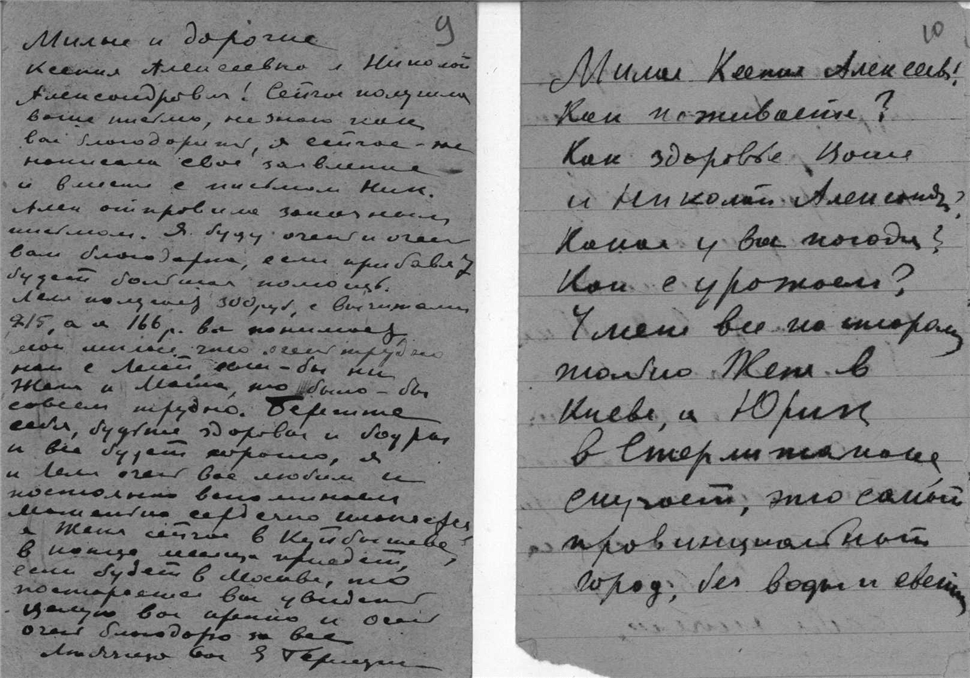 9
Милые и дорогие
Ксения Алексеевна и Николай
Александрович! Сейчас получила
ваше письмо, не знаю как
вас благодарить, я сейчас-же
написала свое заявление
и вместе с письмом Ник.
Алек отправила заказным
письмом. Я буду очень и очень
вам благодарна, если прибавят
будет большая помощь.
Леля получает 300 руб, с вычетами
215, а я 166 р. вы понимаете
мои милые что очень трудно
нам с Лелей, если-бы ни
Женя и Маша, то было-бы
совсем трудно. Берегите
себя, будьте здоровы и бодры
и все будет хорошо, я
и Леля очень вас любим и
постоянно вспоминаем
сердечно
а Женя сейчас в Куйбышеве,
в конце месяца приедет,
если будет в Москве, то
постарается вас увидеть
целую вас крепко и очень
очень благодарю за все
Любящая вас
10
Милая Ксения Алексеев!
Как поживаете?
Как здоровье Ваше
и Николая Александр?
Какая у вас погода?
Как с урожаем?
У меня все по старому
только Женя в
Киеве, а Юрик
в Стерлитамаке
скучает, это самый
провинциальный
город, без воды и света